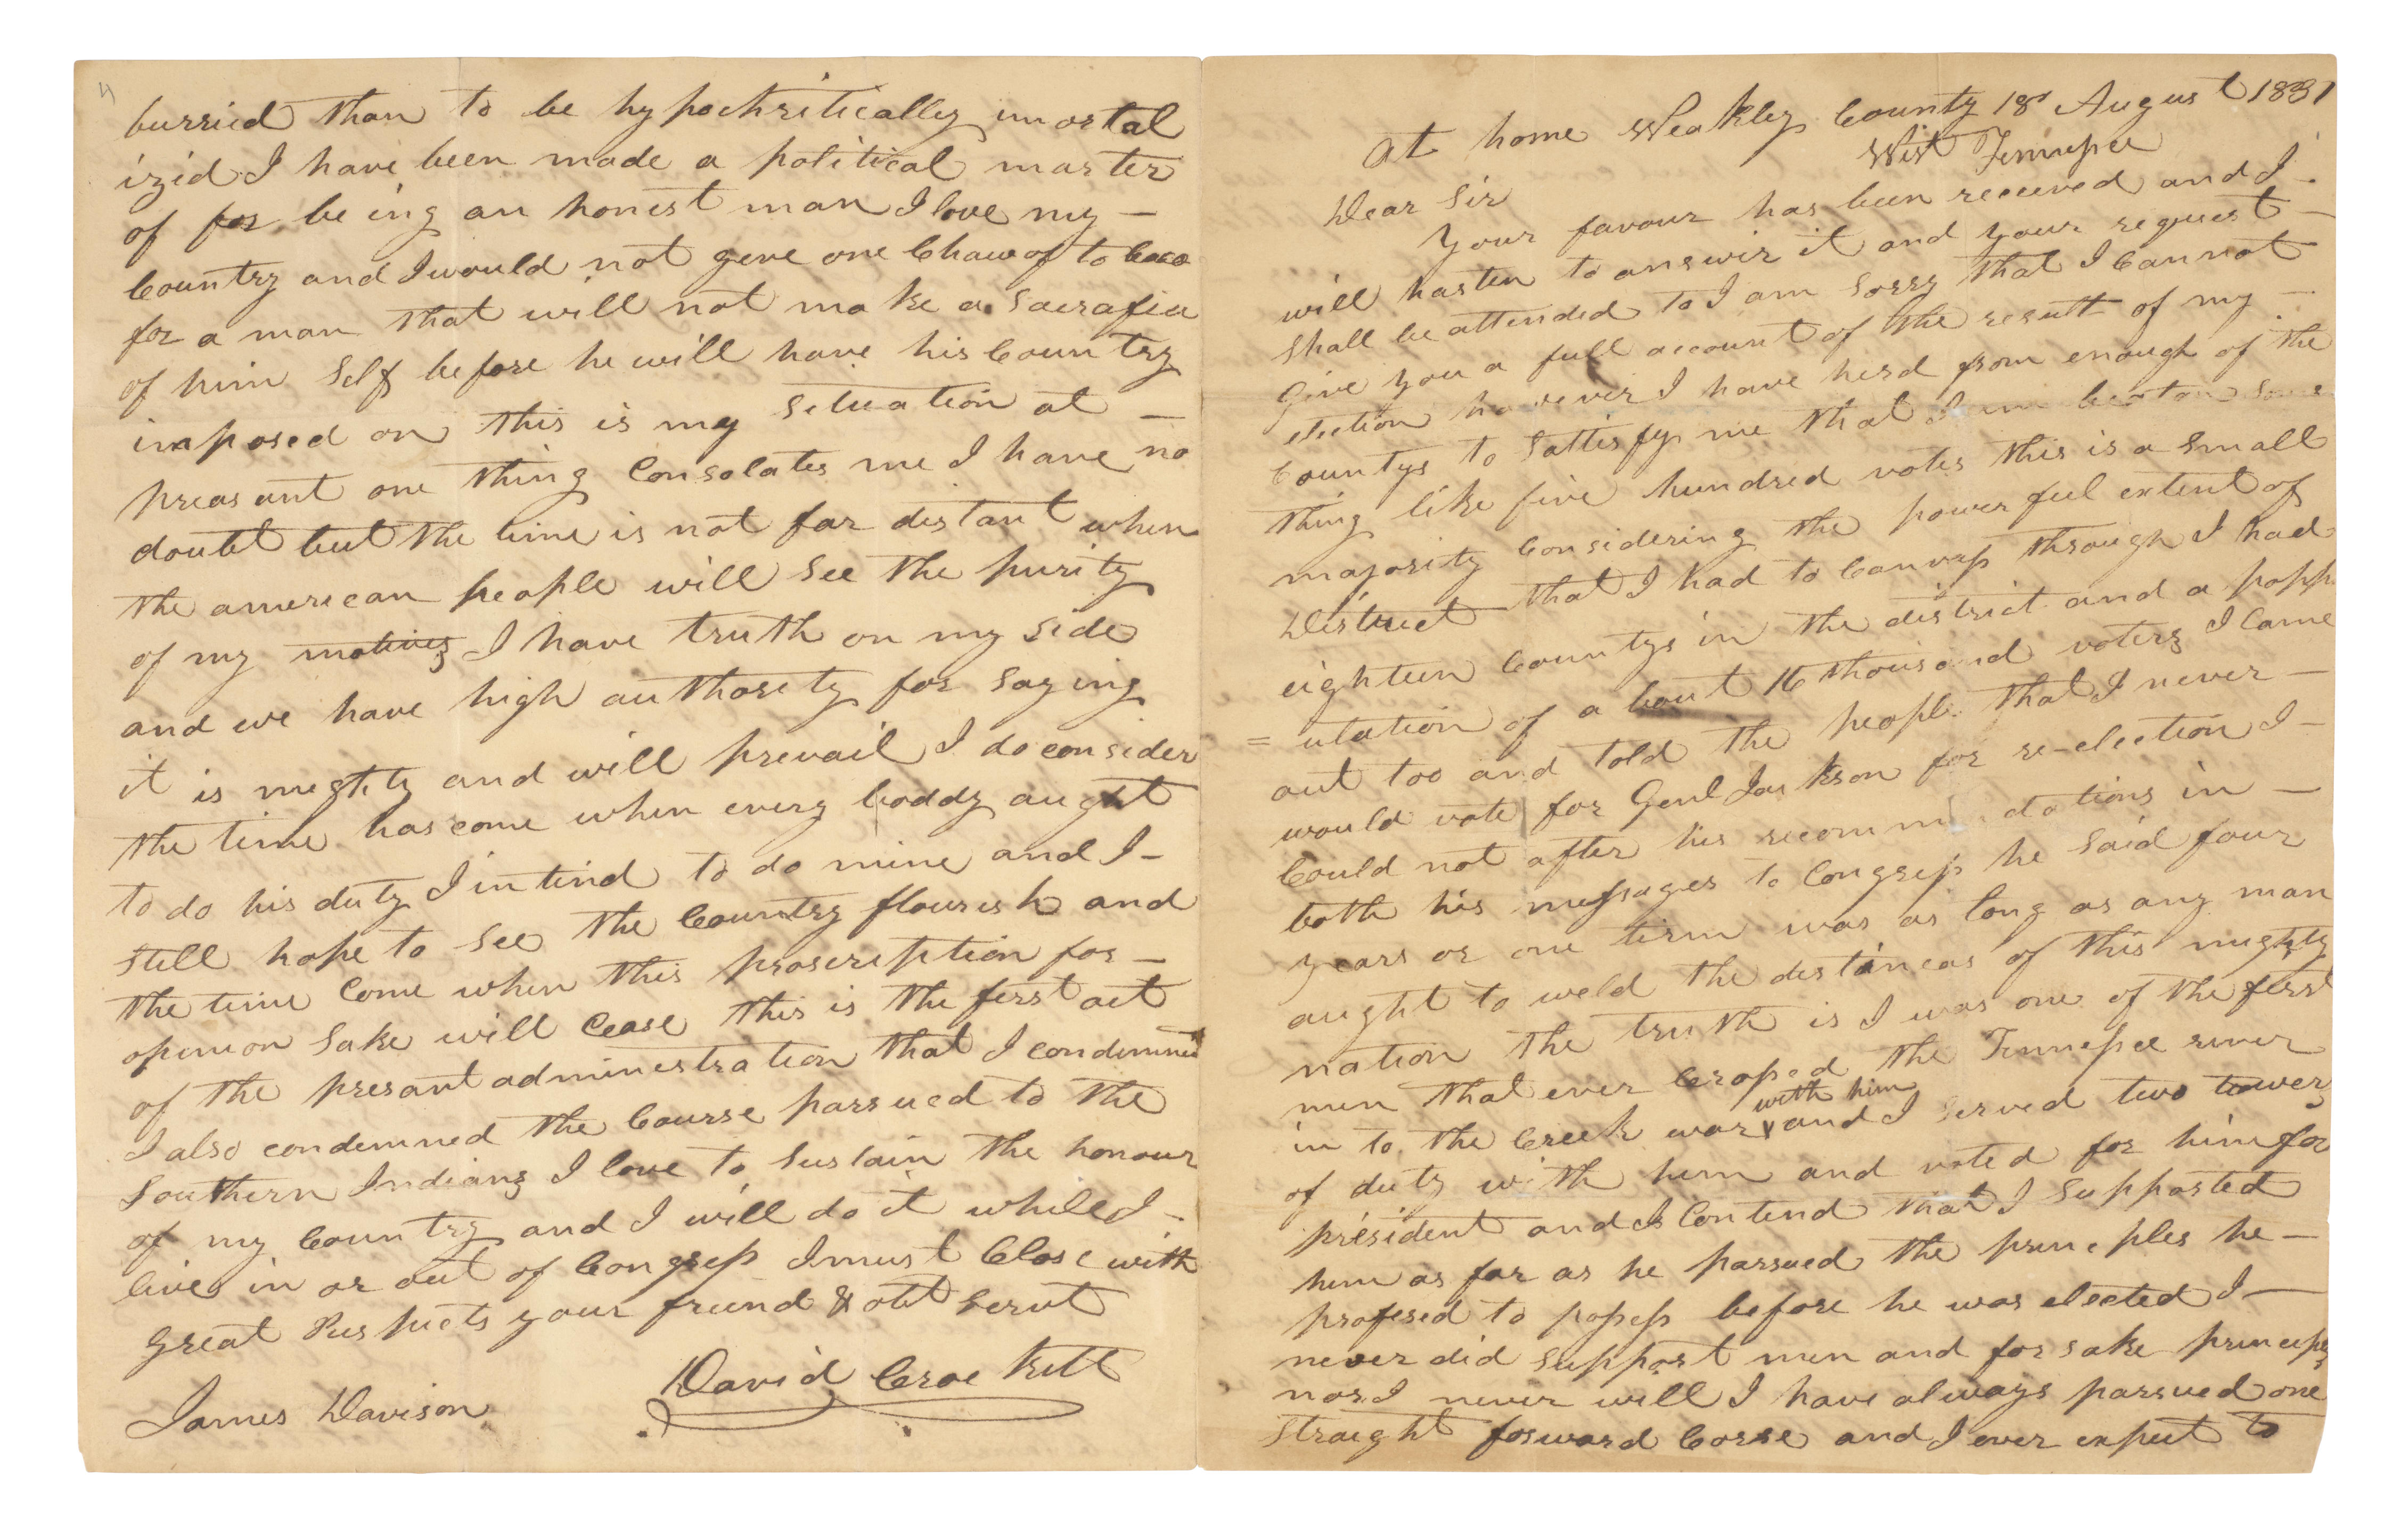 At home Weakley County 18 August 1831
West Tennessee
Dear Sir
Your favour has been received and I
will hasten to answir it and your request
shall be attended to I am Sorry that I Cannot
Give you a full account of the result of my
election however I have herd from enough of the
Countys to Sattisfy me that I am beaton some
thing like five hundred votes this is a Small
majority Considering the powerfeel extent of
District that I had to Canvass through I had
eighteen Countys in the district and a popp
= ulation of a bout 16 thousand voters I Came
out too and told the people that I never
would vote for Genl Jackson for re-election I
Could not after his recommendations in
both his messages to Congress he Said four
years or one term was as long as any man
aught to weld the distineas of this mighty
nation the truth is I was one of the first
men that ever Crossed the Tennessee river
in to the Creek war with him and I Served two towers
of duty with him and voted for him for
president and I Contend that I Supported
him as far as he parsued the principles he
profesed to posess before he was elected I
never did support men and forsake principles
nor I never will I have always parsued one
Straight forward Corse and I ever expect to
4
burried than to be hypochritically imortal
izid I have been made a political marter
of for being an honest man I love my
Country and I would not geve one Chaw of to baco
for a man that will not make a Sacrafice
of him Self before he will have his Country
imposed on this is my Situation at
preasant one thing Consolates me I have no
doubt but the time is not far distant when
the american people will See the purity
of my motives I have truth on my Side
and we have high authority for Saying
it is mighty and will prevail I do consider
the time has come when every boddy aught
to do his duty I intend to do mine and I
Still hope to See the Country flourish and
the time Come when this proscription for
openion Sake will Cease this is the first act
of the presant administration that I condemned
I also condemned the Course parsued to the
Southern Indians I love to Sustain the honour
of my Country and I will do it while I
live in or out of Congress I must Close with
great Respects your friend & obt Servt
David Crockett
James Davison